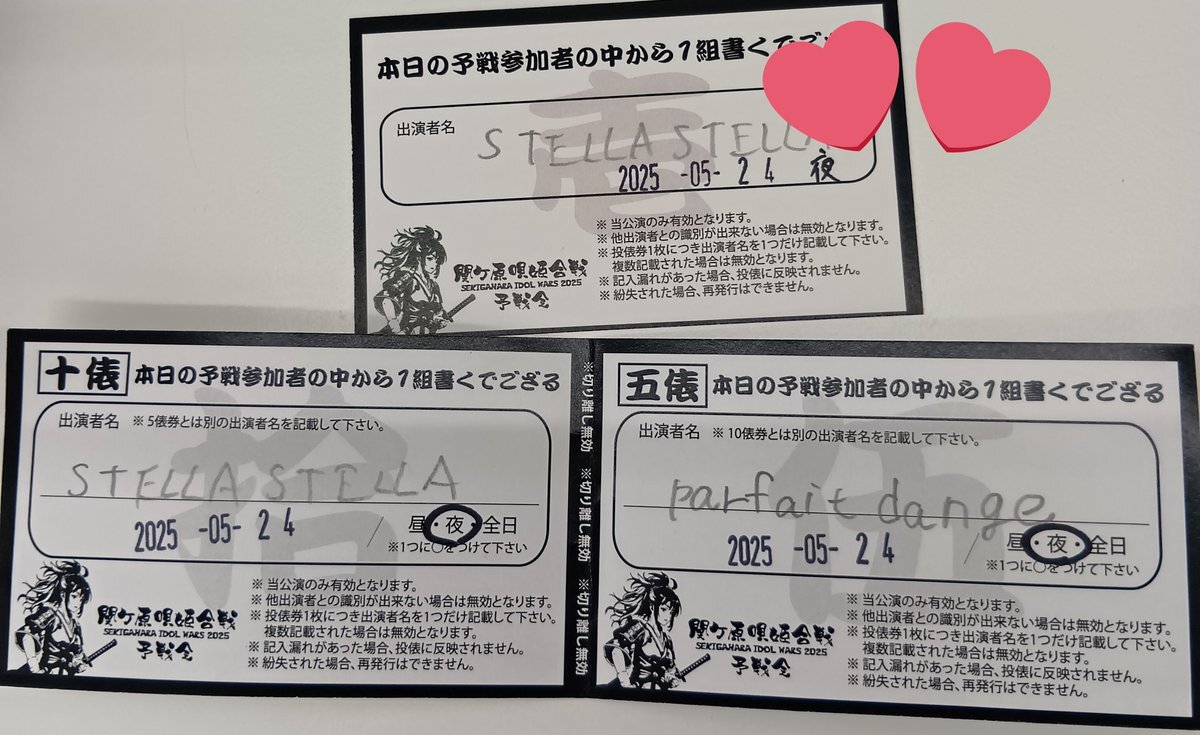 本日の予戦参加者の中から1組書くでござ
壱
出演者名
STELLA STELLA
2025 -05- 24 夜
※ 当公演のみ有効となります。
※ 他出演者との識別が出来ない場合は無効となります。
※ 投俵券1枚につき出演者名を1つだけ記載して下さい。
複数記載された場合は無効となります。
※ 記入漏れがあった場合、投俵に反映されません。
※ 紛失された場合、再発行はできません。
関ケ原唄姫合戦
SEKIGAHARA IDOL WARS 2025
予戦会
十俵 本日の予戦参加者の中から1組書くでござる
拾
出演者名 ※ 5俵券とは別の出演者名を記載して下さい。
STELLA STELLA
2025 -05- 24 / 昼・夜・全日
※1つに○をつけて下さい
※ 当公演のみ有効となります。
※ 他出演者との識別が出来ない場合は無効となります。
※ 投俵券1枚につき出演者名を1つだけ記載して下さい。
複数記載された場合は無効となります。
※ 記入漏れがあった場合、投俵に反映されません。
※ 紛失された場合、再発行はできません。
関ケ原唄姫合戦
SEKIGAHARA IDOL WARS 2025
予戦会
※切り離し無効 ※切り離し無効 ※切り離し無効
五俵 本日の予戦参加者の中から1組書くでござる
伍
出演者名 ※ 10俵券とは別の出演者名を記載して下さい。
parfait dange
2025 -05- 24 / 昼・夜・全日
※1つに○をつけて下さい
※ 当公演のみ有効となります。
※ 他出演者との識別が出来ない場合は無効となります。
※ 投俵券1枚につき出演者名を1つだけ記載して下さい。
複数記載された場合は無効となります。
※ 記入漏れがあった場合、投俵に反映されません。
※ 紛失された場合、再発行はできません。
関ケ原唄姫合戦
SEKIGAHARA IDOL WARS 2025
予戦会